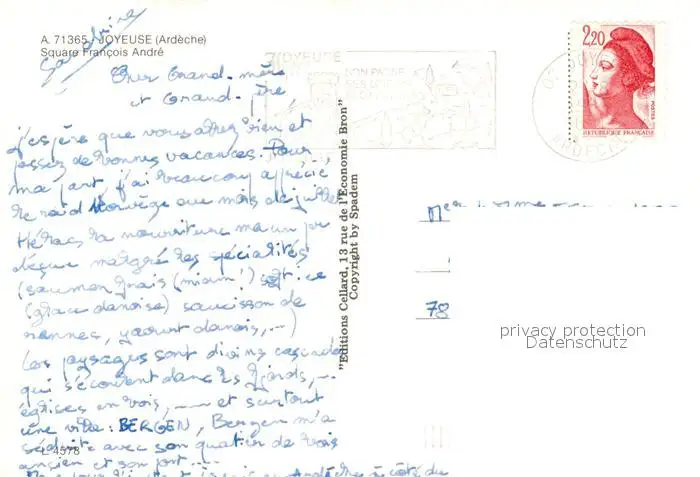 A. 71365 - JOYEUSE (Ardèche)
Square François André
Sandrine
Cher Grand-mère
et Grand-père,
J'espère que vous allez bien et
passez de bonnes vacances. Pour
ma part, j'ai beaucoup apprécié
le raid Norvège au mois de juillet.
Hélas la nourriture m'a un peu
déçue malgré les spécialités
(saumon frais (miam!)
(glace danoise) saucisson de
rennes, yaourt danois, ...)
Les paysages sont divins cascades
qui s'écoulent dans les fjords, ...
églises en bois, ... et surtout
une ville : BERGEN, Bergen m'a
séduite avec son quartier de bois
ancien et son port ...
Ardèche à côté du
L 4578
"Editions Cellard, 13 rue de l'Economie Bron"
Copyright by Spadem
JOYEUSE
2,20
POSTES
REPUBLIQUE FRANÇAISE
ARDECHE
78
privacy protection
Datenschutz